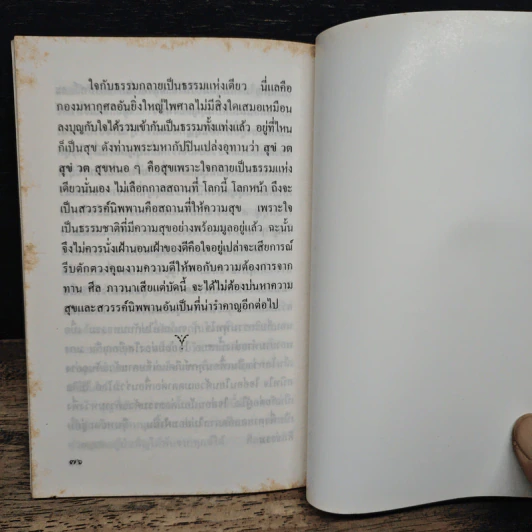 ใจกับธรรมกลายเป็นธรรมแห่งเดียว นี่แลคือ
กองมหากุศลอันยิ่งใหญ่ไพศาลไม่มีสิ่งใดเสมอเหมือน
ลงบุญกับใจได้รวมเข้ากันเป็นธรรมทั้งแท่งแล้ว อยู่ที่ไหน
ก็เป็นสุข ดังท่านพระมหากัปปินเปล่งอุทานว่า สุขํ วต
สุขํ วต สุขหนอ ๆ คือสุขเพราะใจกลายเป็นธรรมแห่ง
เดียวนั่นเอง ไม่เลือกกาลสถานที่ โลกนี้ โลกหน้า ถึงจะ
เป็นสวรรค์นิพพานคือสถานที่ให้ความสุข เพราะใจ
เป็นธรรมชาติที่มีความสุขอย่างพร้อมมูลอยู่แล้ว ฉะนั้น
จึงไม่ควรนั่งเฝ้านอนเฝ้าของดีคือใจอยู่เปล่าจะเสียการณ์
รีบตักตวงคุณงามความดีให้พอกับความต้องการจาก
ทาน ศีล ภาวนาเสียแต่บัดนี้ จะได้ไม่ต้องบ่นหาความ
สุขและสวรรค์นิพพานอันเป็นที่น่ารำคาญอีกต่อไป
๓๖